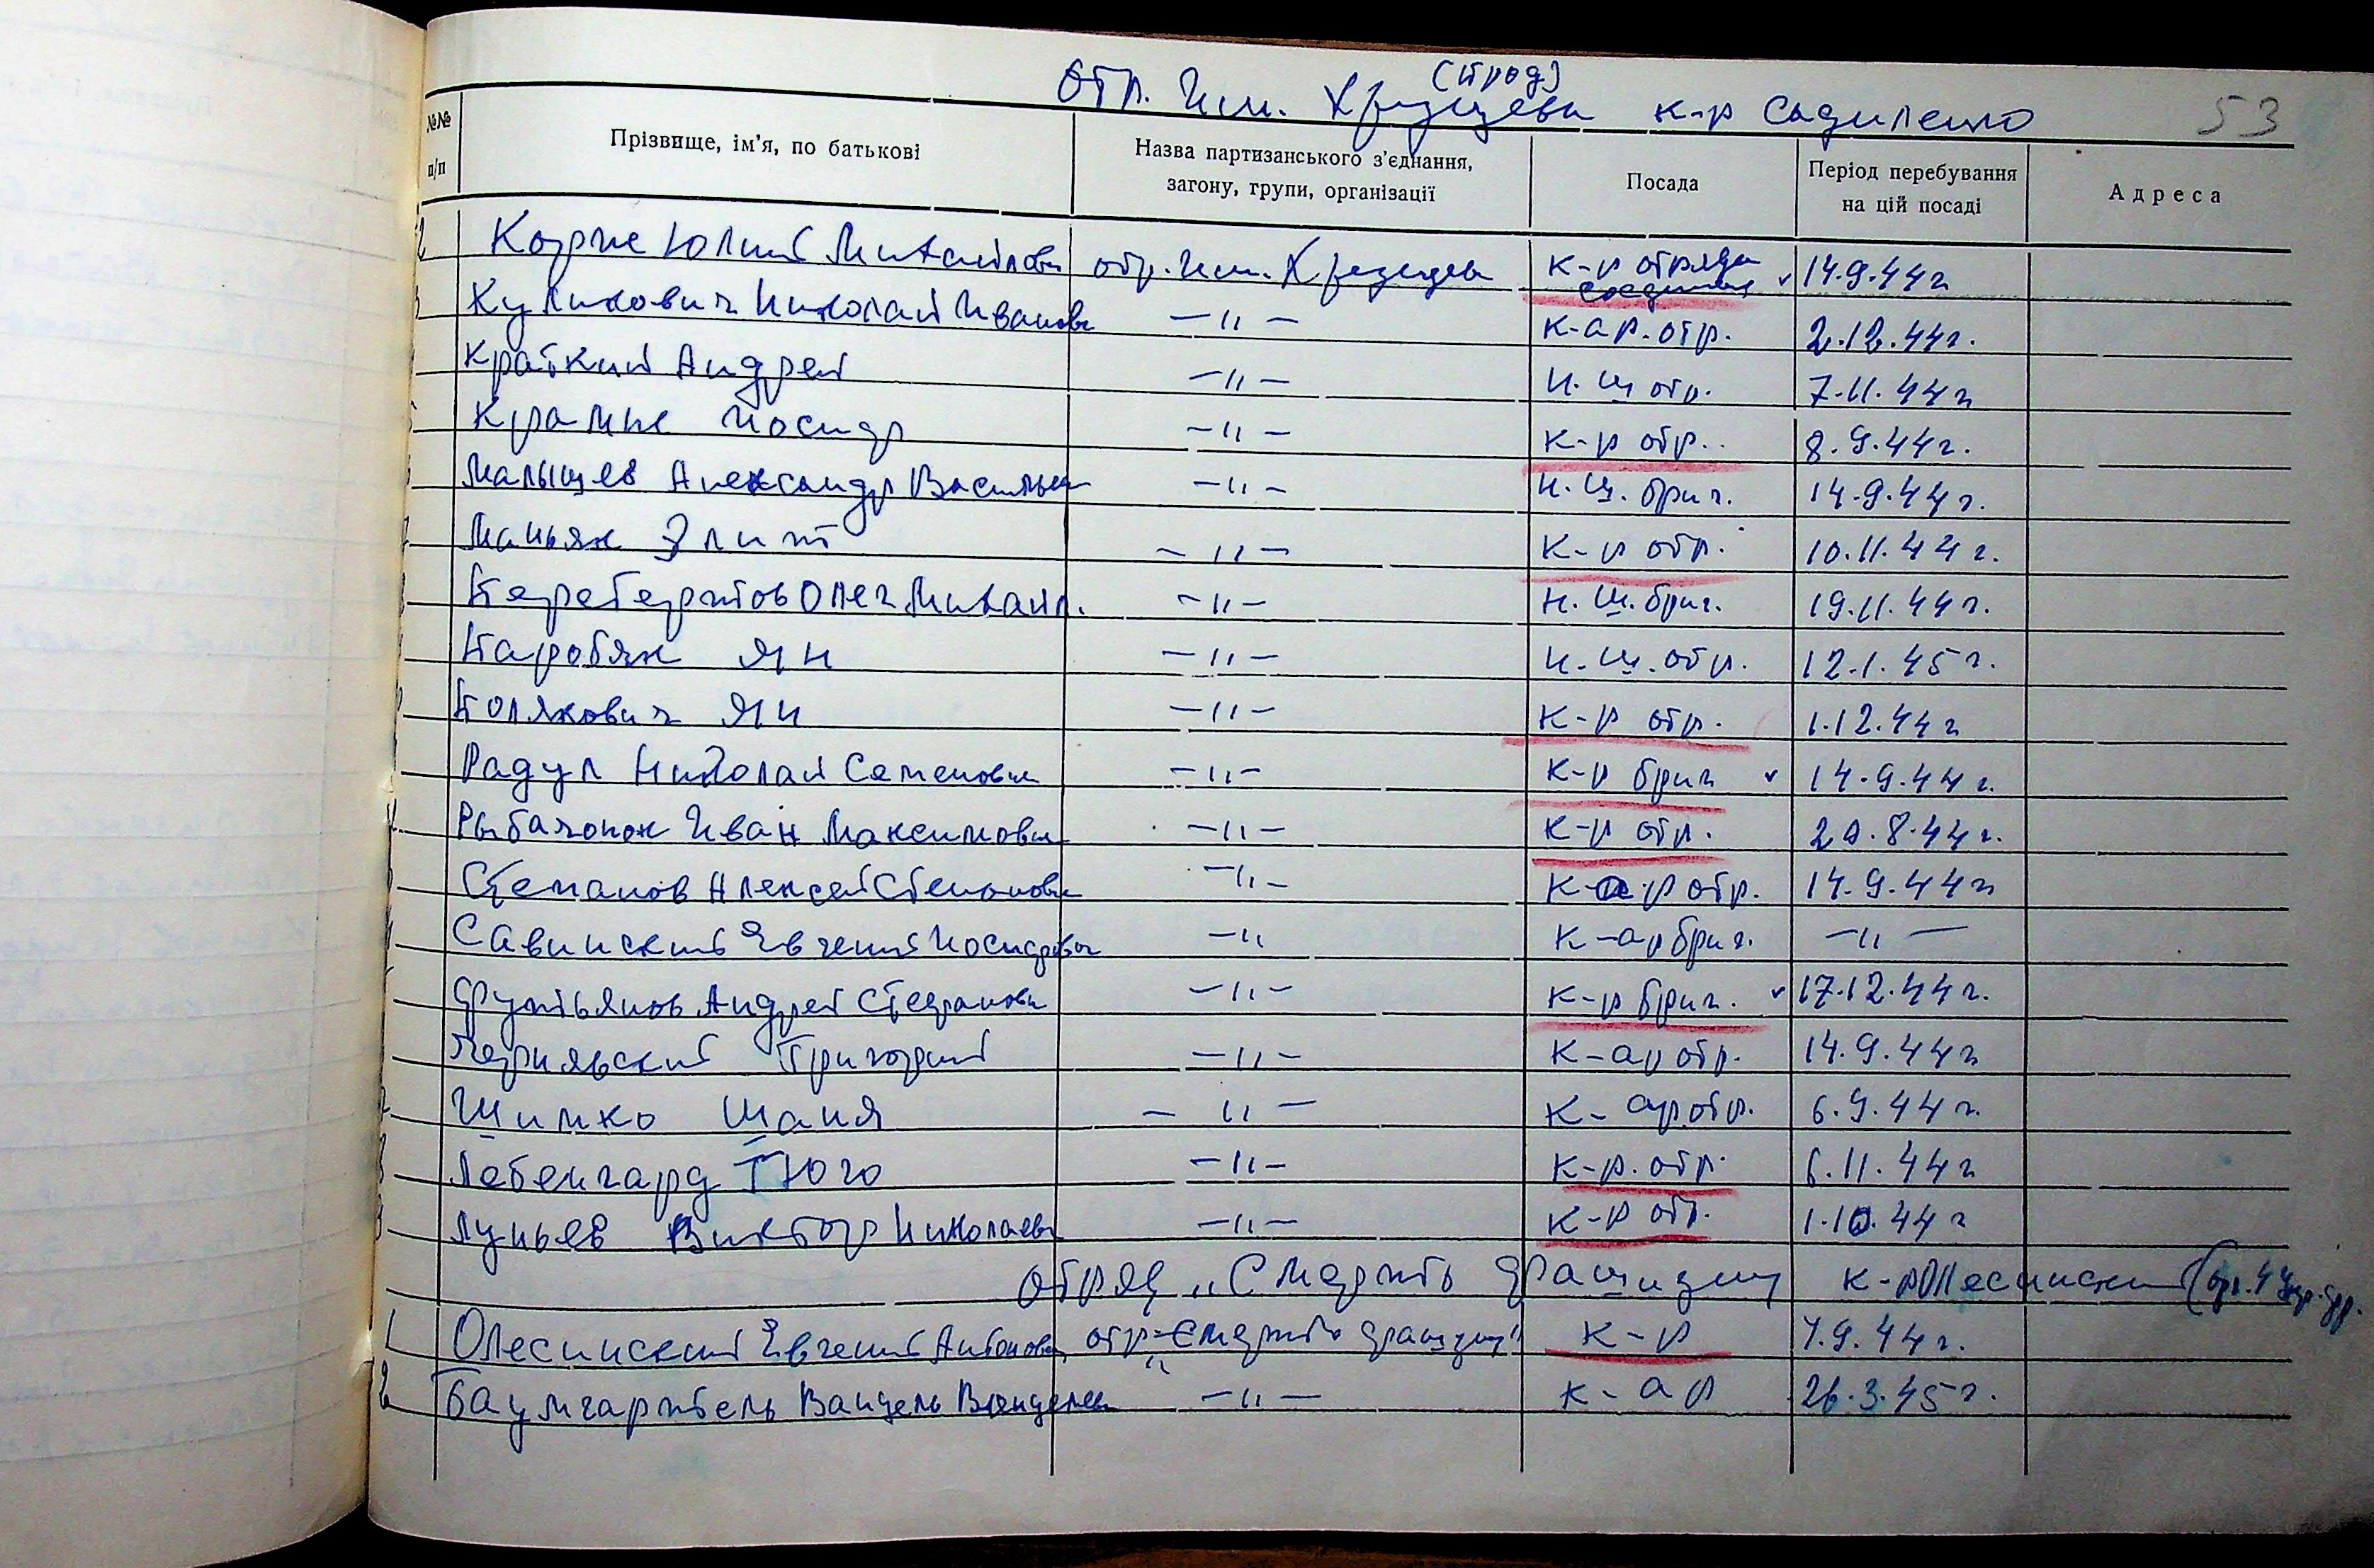 (прод)
Отр. им. Хрущева к-р Садиленко
53
№№ п/п
Прізвище, ім'я, по батькові
Назва партизанського з'єднання, загону, групи, організації
Посада
Період перебування на цій посаді
Адреса
2 Корпе Юлий Михайлови отр. им. Хрущева к-р отряда соединия 14.9.44 г
Куликович Николай Иванови —"— к-ар. отр. 2.12.44 г.
Краткий Андрей —"— н. ш отр. 7.11.44 г
Крамне Иосиф —"— к-р отр.. 8.9.44 г.
Малышев Александр Василье —"— н. ш. бриг. 14.9.44 г.
Маньяк Элит —"— к-р отр. 10.11.44 г.
Перебертов Олег Михаил. —"— н. ш. бриг. 19.11.44 г.
Паробяк Ян —"— н. ш. отр. 12.1.45 г.
Полякович Ян —"— к-р отр. 1.12.44 г
Радул Николай Семенови —"— к-р бриг 14.9.44 г.
Рыбаченок Иван Максимови —"— к-р отр. 20.8.44 г.
Степанов Алексей Степанови —"— к-ар отр. 14.9.44 г
Савинский Евгений Иосифови —" к-ар бриг. —"—
Фунтьянов Андрей Стефанови —"— к-р бриг. 17.12.44 г.
Чернявский Григорий —"— к-ар отр. 14.9.44 г
Шимко Шаня —"— к-ар отр. 6.9.44 г.
Лебенгард Гюго —"— к-р. отр. 6.11.44 г
Луньев Виктор Николаеви —"— к-р отр. 1.10.44 г
отряд „Смерть фашизму к-р Олесинский
1 Олесинский Евгений Антонови отр. „Смерть фашизму" к-р 7.9.44 г.
2 Баумгартель Ванцель Венцелев —"— к-ар 26.3.45 г.